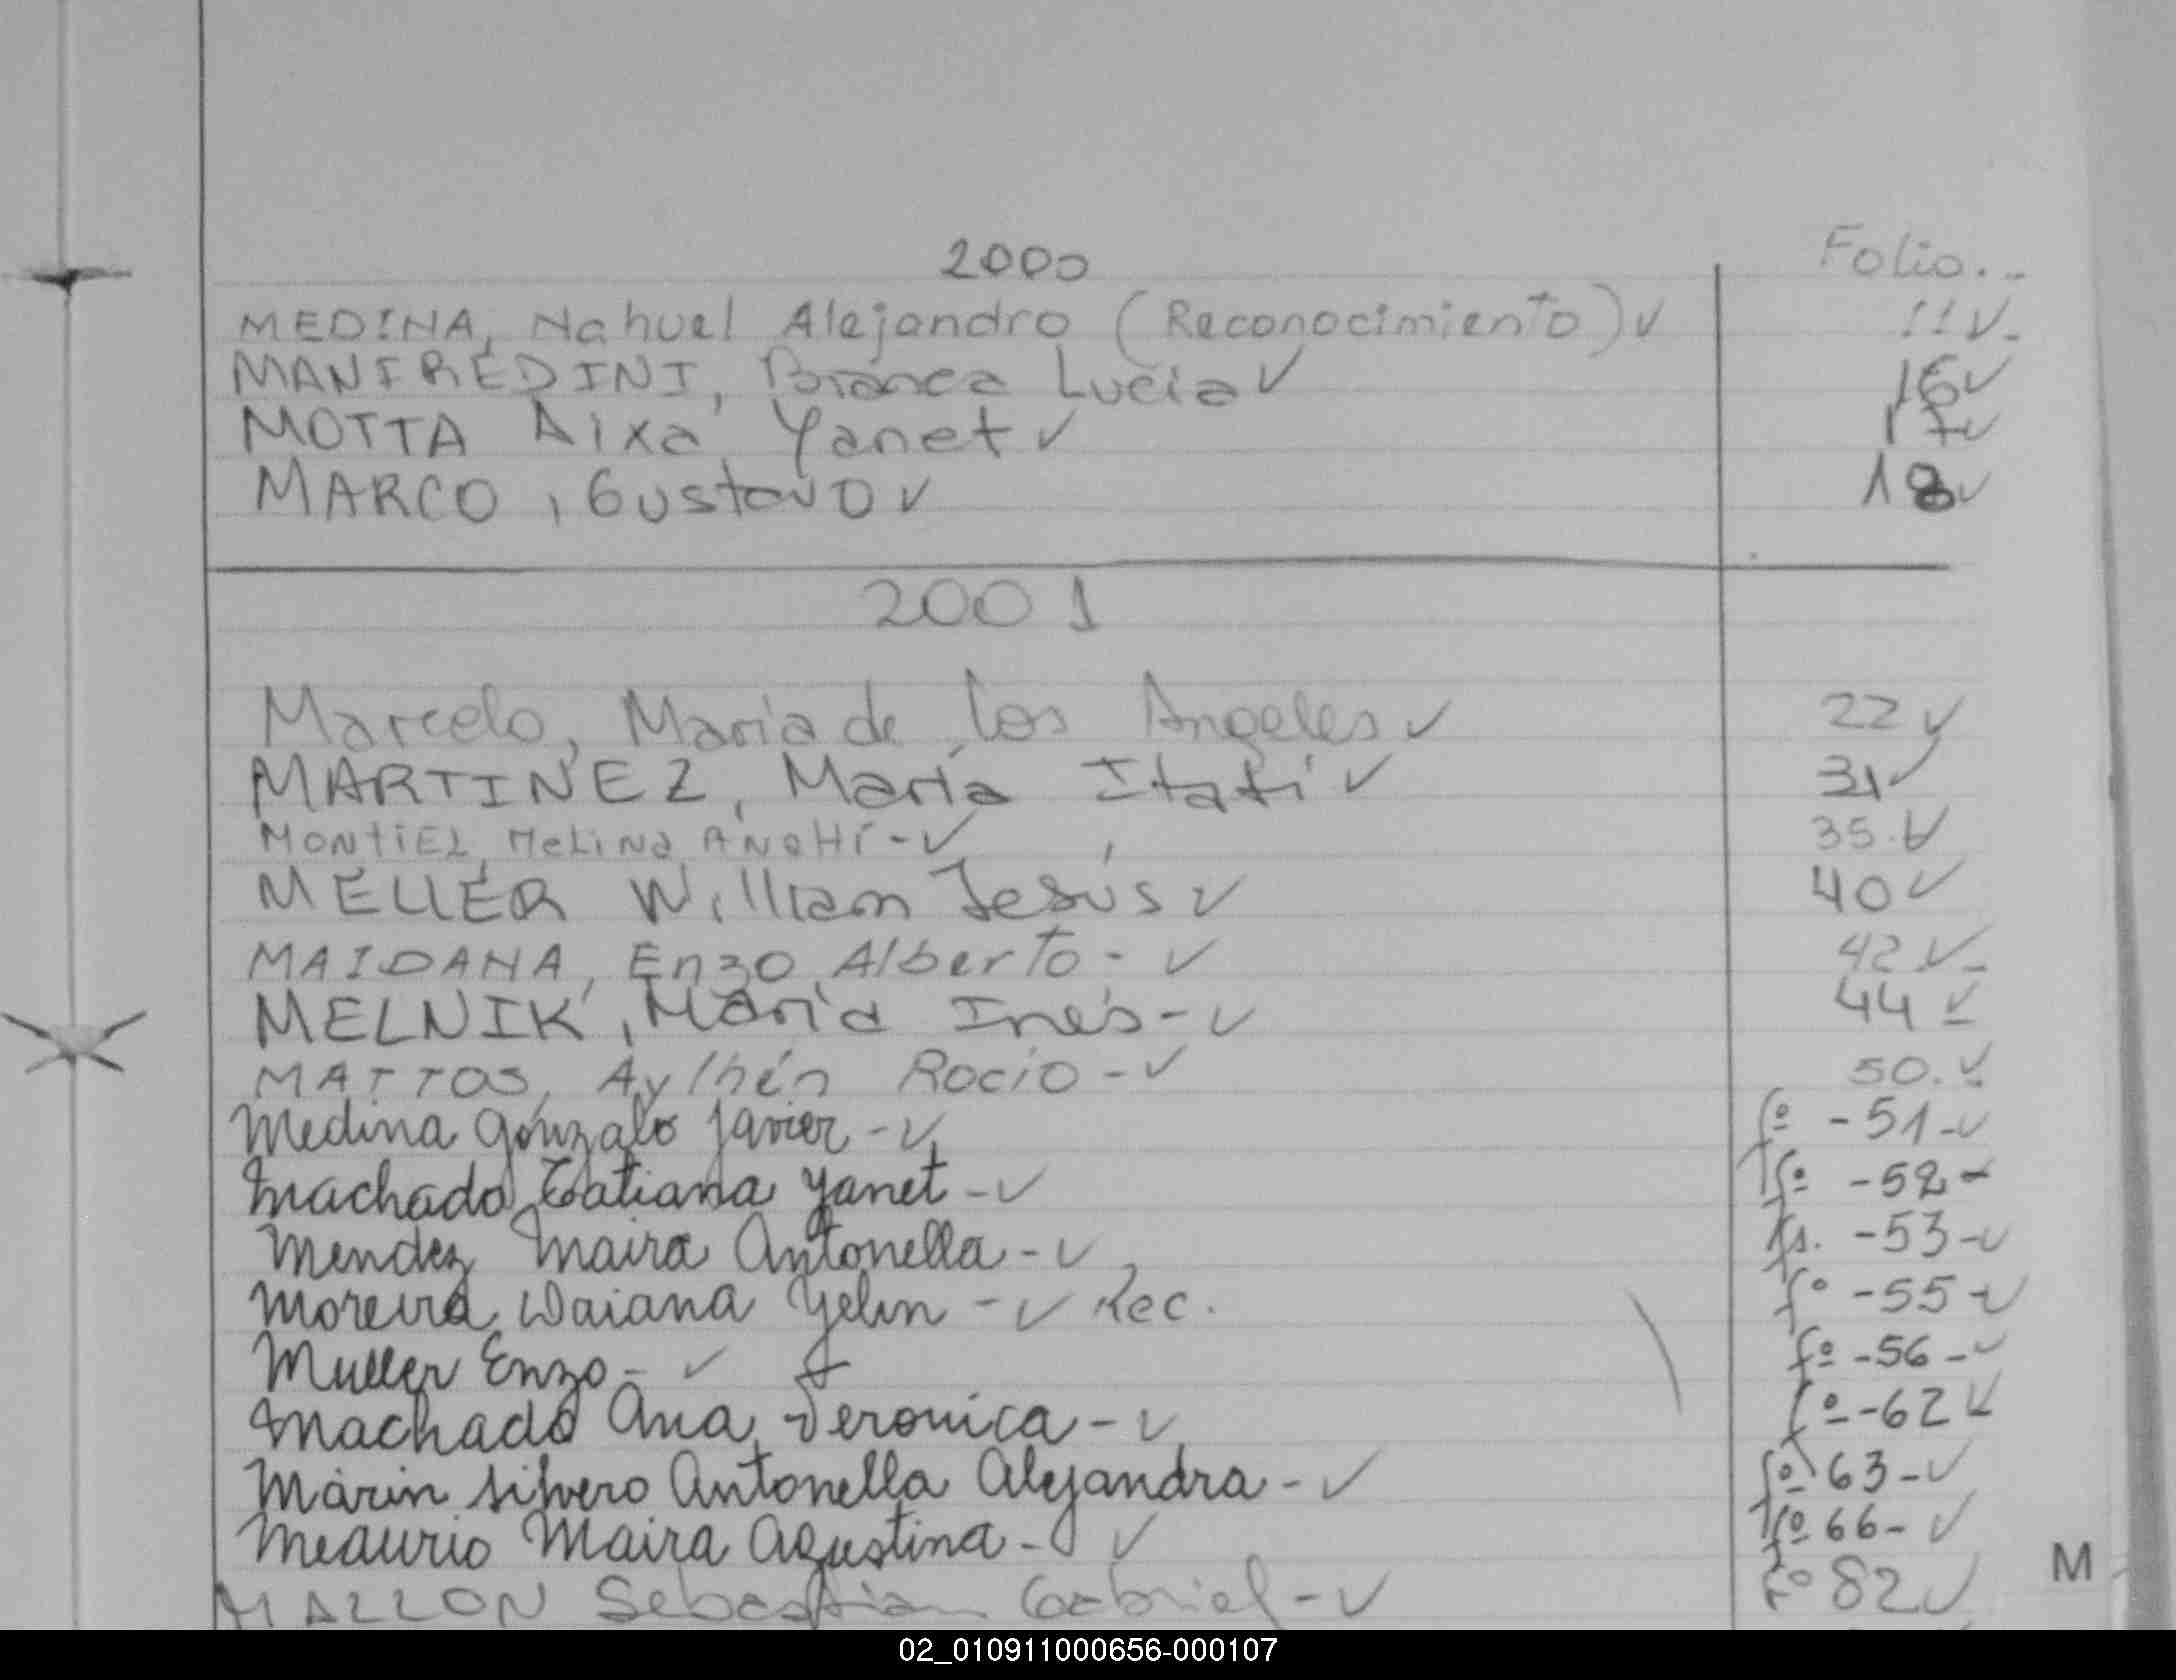 2000 Folio.-
MEDINA, Nahuel Alejandro (Reconocimiento) ✓ 11 ✓.
MANFREDINI, Bianca Lucia ✓ 16 ✓
MOTTA Aixa Yanet ✓ 17 ✓
MARCO, Gustavo ✓ 18 ✓
2001
Marcelo, Maria de los Angeles ✓ 22 ✓
MARTINEZ, María Itatí ✓ 31 ✓
MONTIEL, MELINA ANAHÍ - ✓ 35. ✓
MELLER William Jesús ✓ 40 ✓
MAIDANA, Enzo Alberto - ✓ 42 ✓-
MELNIK, María Inés - ✓ 44 ✓
MATTOS, Aylhén Rocío - ✓ 50. ✓
Medina Gonzalo Javier - ✓ fº - 51 - ✓
Machado Tatiana Yanet - ✓ fº - 52 -
Mendez Maira Antonella - ✓ fs. - 53 - ✓
Moreira Daiana Yelin - ✓ Rec. fº - 55 - ✓
Muller Enzo - ✓ fº - 56 - ✓
Machado Ana Veronica - ✓ fº - 62 ✓
Marin Silvero Antonella Alejandra - ✓ fº 63 - ✓
Meaurio Maira Agustina - ✓ fº 66 - ✓
MALLON Sebastian Gabriel - ✓ fº 82 ✓
M
02_010911000656-000107